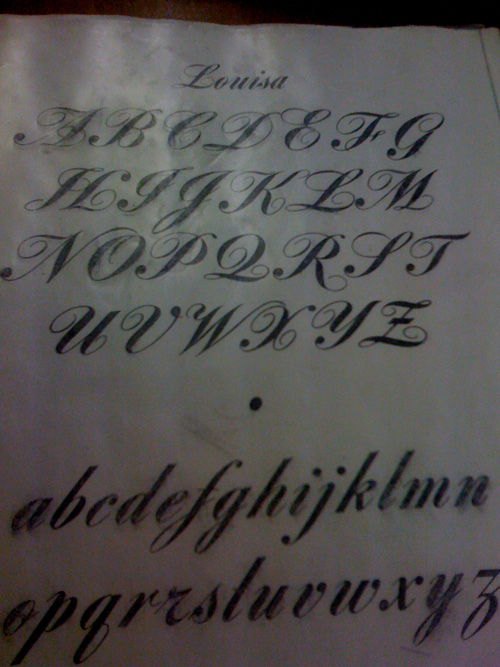 Louisa
ABCDEFG
HIJKLM
NOPQRST
UVWXYZ
abcdefghijklmn
opqrrsluvwxyz